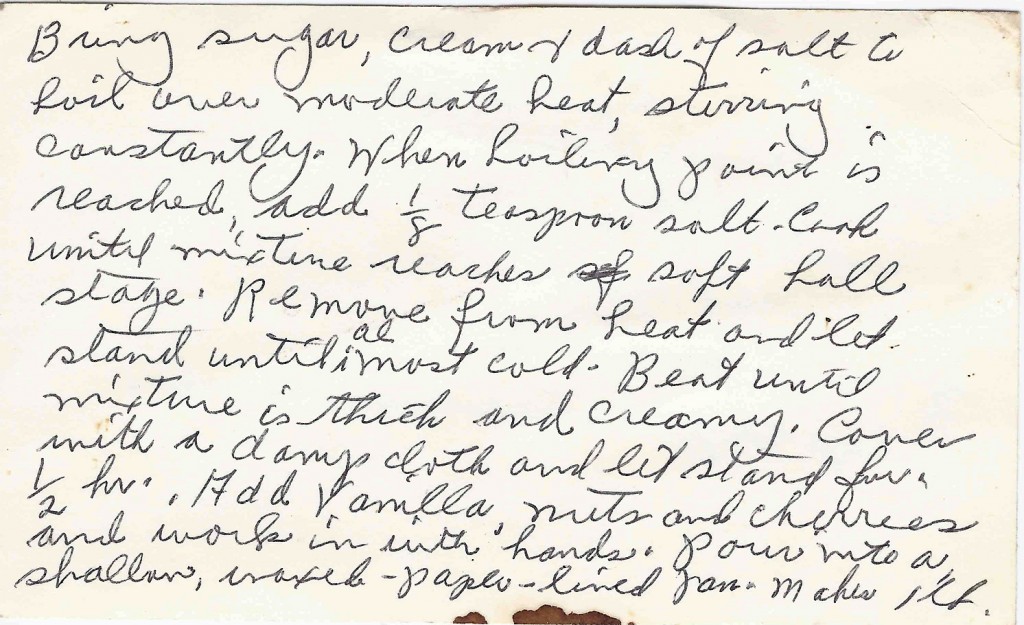 Bring sugar, cream & dash of salt to
boil over moderate heat, stirring
constantly. When boiling point is
reached, add 1/8 teaspoon salt. Cook
until mixture reaches soft ball
stage. Remove from heat and let
stand until almost cold. Beat until
mixture is thick and creamy. Cover
with a damp cloth and let stand for
1/2 hr. Add Vanilla, nuts and cherries
and work in with hands. Pour into a
shallow, waxed-paper-lined pan. Makes 1 lb.